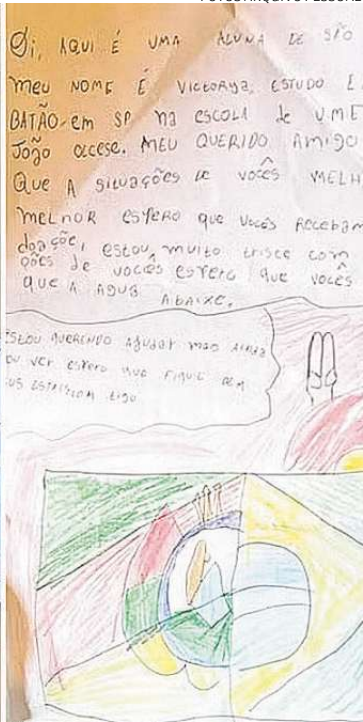 OI, AQUI É UMA ALUNA DE SÃO
meu NOME É Victorya, ESTUDO E
BATÃO-em SP na escola de UME
João accese. MEU QUERIDO Amigo
Que A situações de vocês MELH
MELHOR espero que vocês Recebam
doaçõe, estou muito trisce com
ções de vociês espero que vocês
que A AGUA
ABAIXE.
ESTOU QUERENDO AJUDAR MAO AINDA
OU VER espero que FIQUE BEM
US ESTAIJCOM tigo